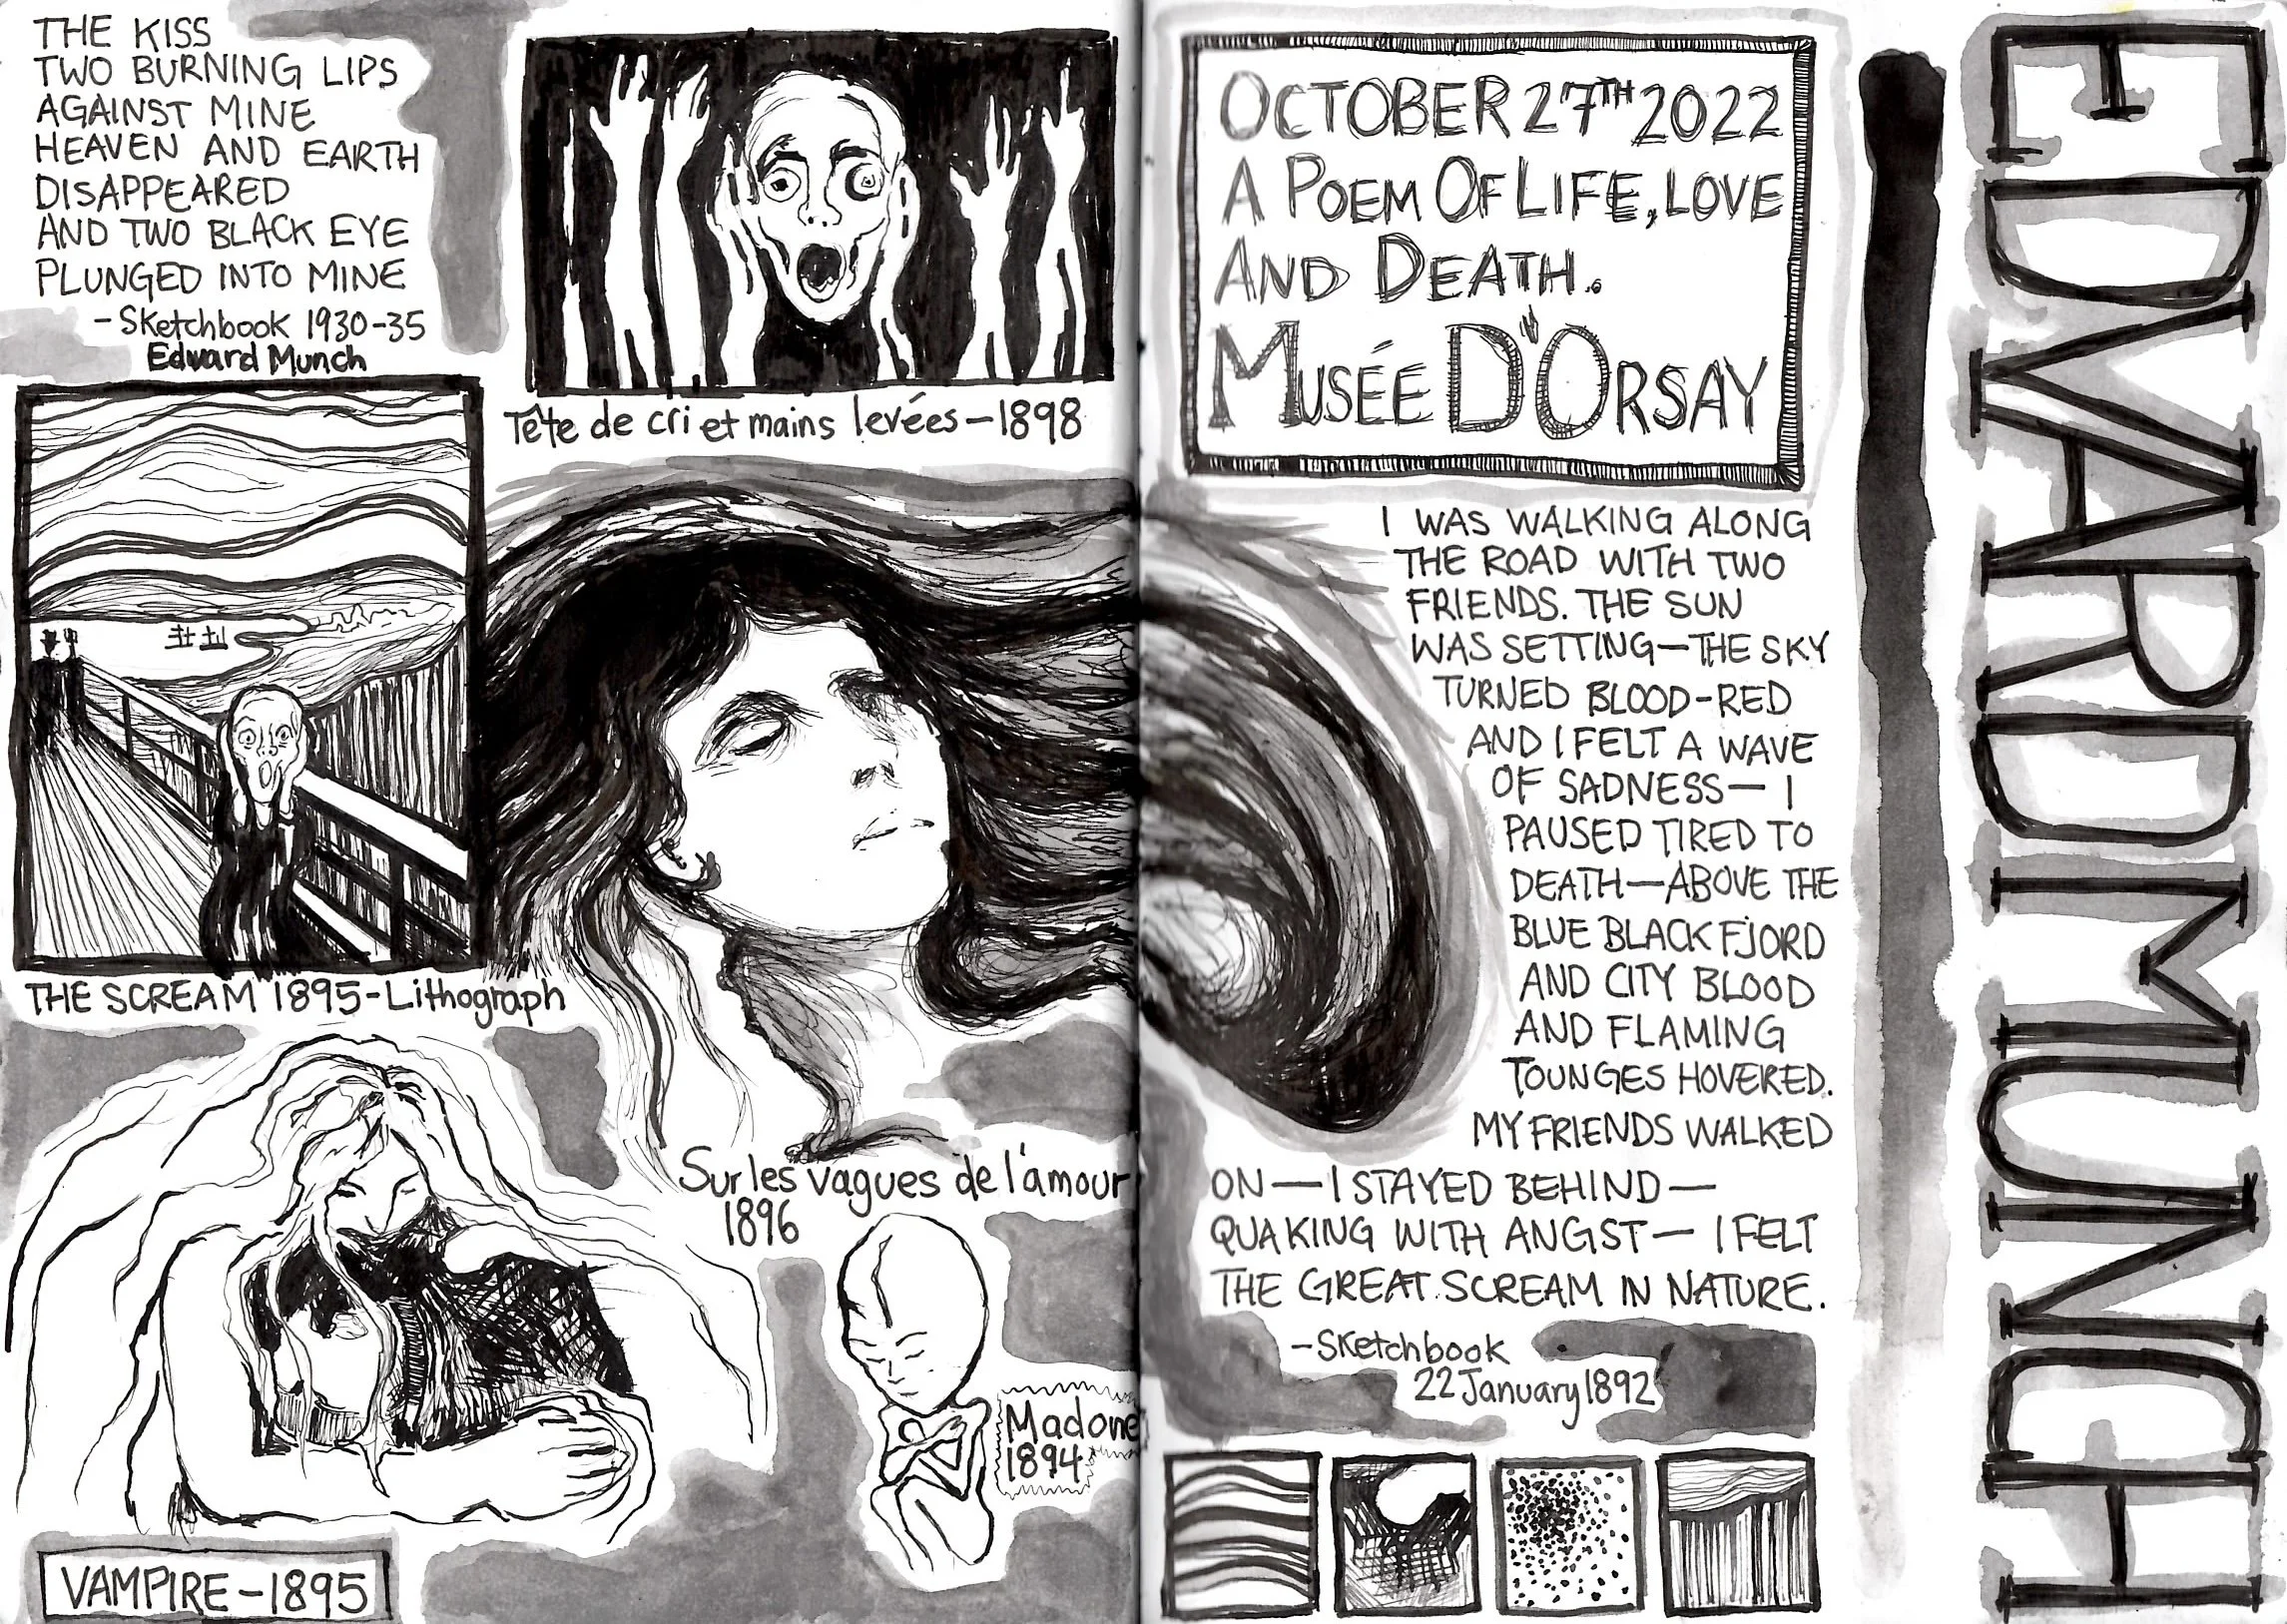 THE KISS
TWO BURNING LIPS
AGAINST MINE
HEAVEN AND EARTH
DISAPPEARED
AND TWO BLACK EYE
PLUNGED INTO MINE
-Sketchbook 1930-35
Edward Munch
Tête de cri et mains levées-1898
THE SCREAM 1895-Lithograph
Sur les vagues de l'amour
1896
Madone
1894
VAMPIRE-1895
OCTOBER 27TH 2022
A POEM OF LIFE, LOVE
AND DEATH.
MUSÉE D'ORSAY
I WAS WALKING ALONG
THE ROAD WITH TWO
FRIENDS. THE SUN
WAS SETTING—THE SKY
TURNED BLOOD-RED
AND I FELT A WAVE
OF SADNESS— I
PAUSED TIRED TO
DEATH—ABOVE THE
BLUE BLACK FJORD
AND CITY BLOOD
AND FLAMING
TOUNGES HOVERED.
MY FRIENDS WALKED
ON—I STAYED BEHIND—
QUAKING WITH ANGST— I FELT
THE GREAT SCREAM IN NATURE.
-Sketchbook
22 January 1892
EDVARD MUNCH